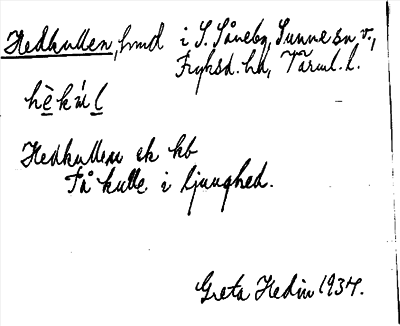 Hedkullen, hmd i S. Såneby, Sunne sn v.,
Fryksd. hd, Värml. l.
hèkúl
Hedkullen ek kb
Få kulle i ljunghed.
Greta Hedin 1934.